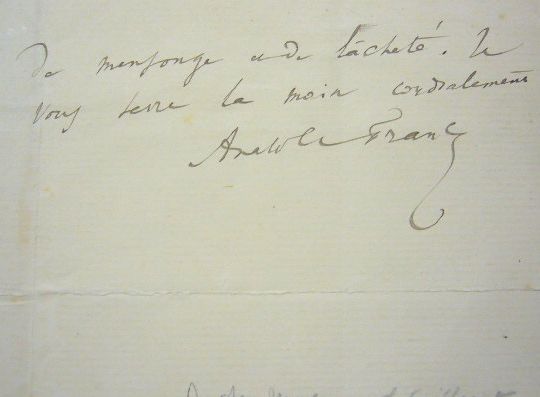 de mensonge et de lâcheté. Je
vous serre la main cordialement
Anatole France